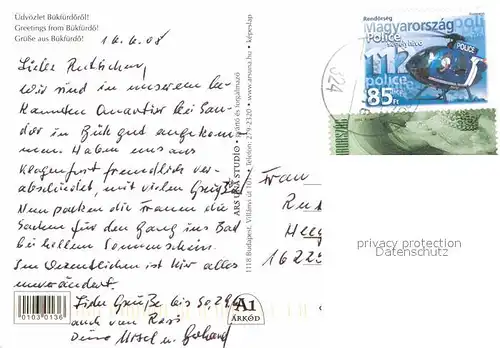 Üdvözlet Bükfürdőről!
Greetings from Bükfürdő!
Grüße aus Bükfürdő!
16.6.08
Liebe
wir sind in unserem be-
kannten Quartier bei San-
dor in Bük gut angekom-
men. Haben uns aus
Klagenfurt freundlich ver-
abschiedet, mit vielen Grüßen
Nun packen die Frauen die
Sachen für den Gang ins Bad
bei hellem Sonnenschein.
Im Wesentlichen ist hier alles
unverändert.
Liebe Grüße bis 30.
auch von
u. Gerhard
0103 0136
A1
ÁRKÓD
ARS UNA STUDIO • gyártó és forgalmazó • www.arsuna.hu • képeslap
1118 Budapest, Villányi út 10. • Telefon: 279-2120
Frau
16225
Rendőrség
Magyarország
Police
112
police
POLICE
85Ft
324
privacy protection
Datenschutz